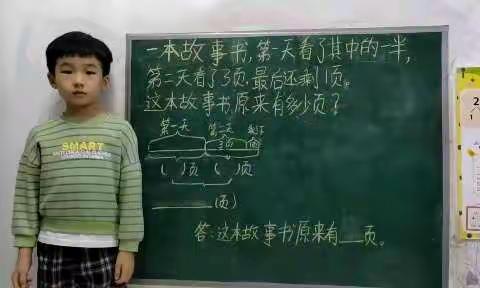 一本故事书,第一天看了其中的一半,
第二天看了3页,最后还剩1页。
这本故事书原来有多少页?
第一天 第二天 剩下
3页
( )页 ( )页
(页)
答:这本故事书原来有___页。
SMART
2
1